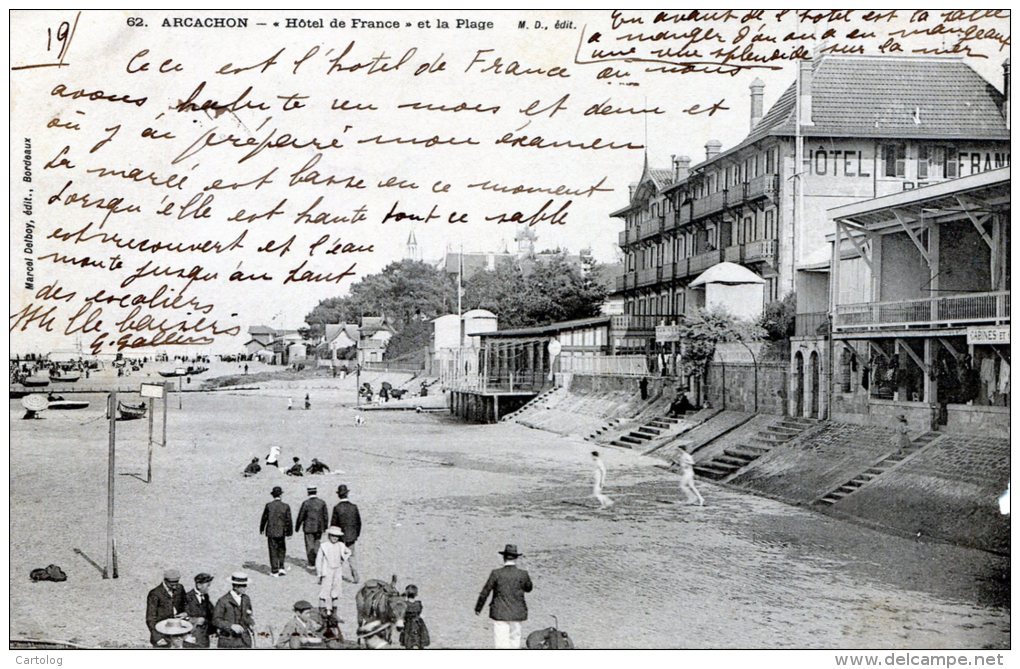 62. ARCACHON – « Hôtel de France » et la Plage M. D., édit.
19)
En avant de l'hôtel est la salle
a manger d'où on a en mangeant
une vue splendide sur la mer
Ceci est l'hôtel de France où nous
avons habité un mois et demi et
où j'ai préparé mon examen
La marée est basse en ce moment
Lorsqu'elle est haute tout ce sable
est recouvert et l'eau
monte jusqu'au haut
des escaliers
Mille baisers
G. Gallen
Marcel Delboy, édit., Bordeaux
HÔTEL
FRAN
CABINES ET
Cartolog
www.delcampe.net